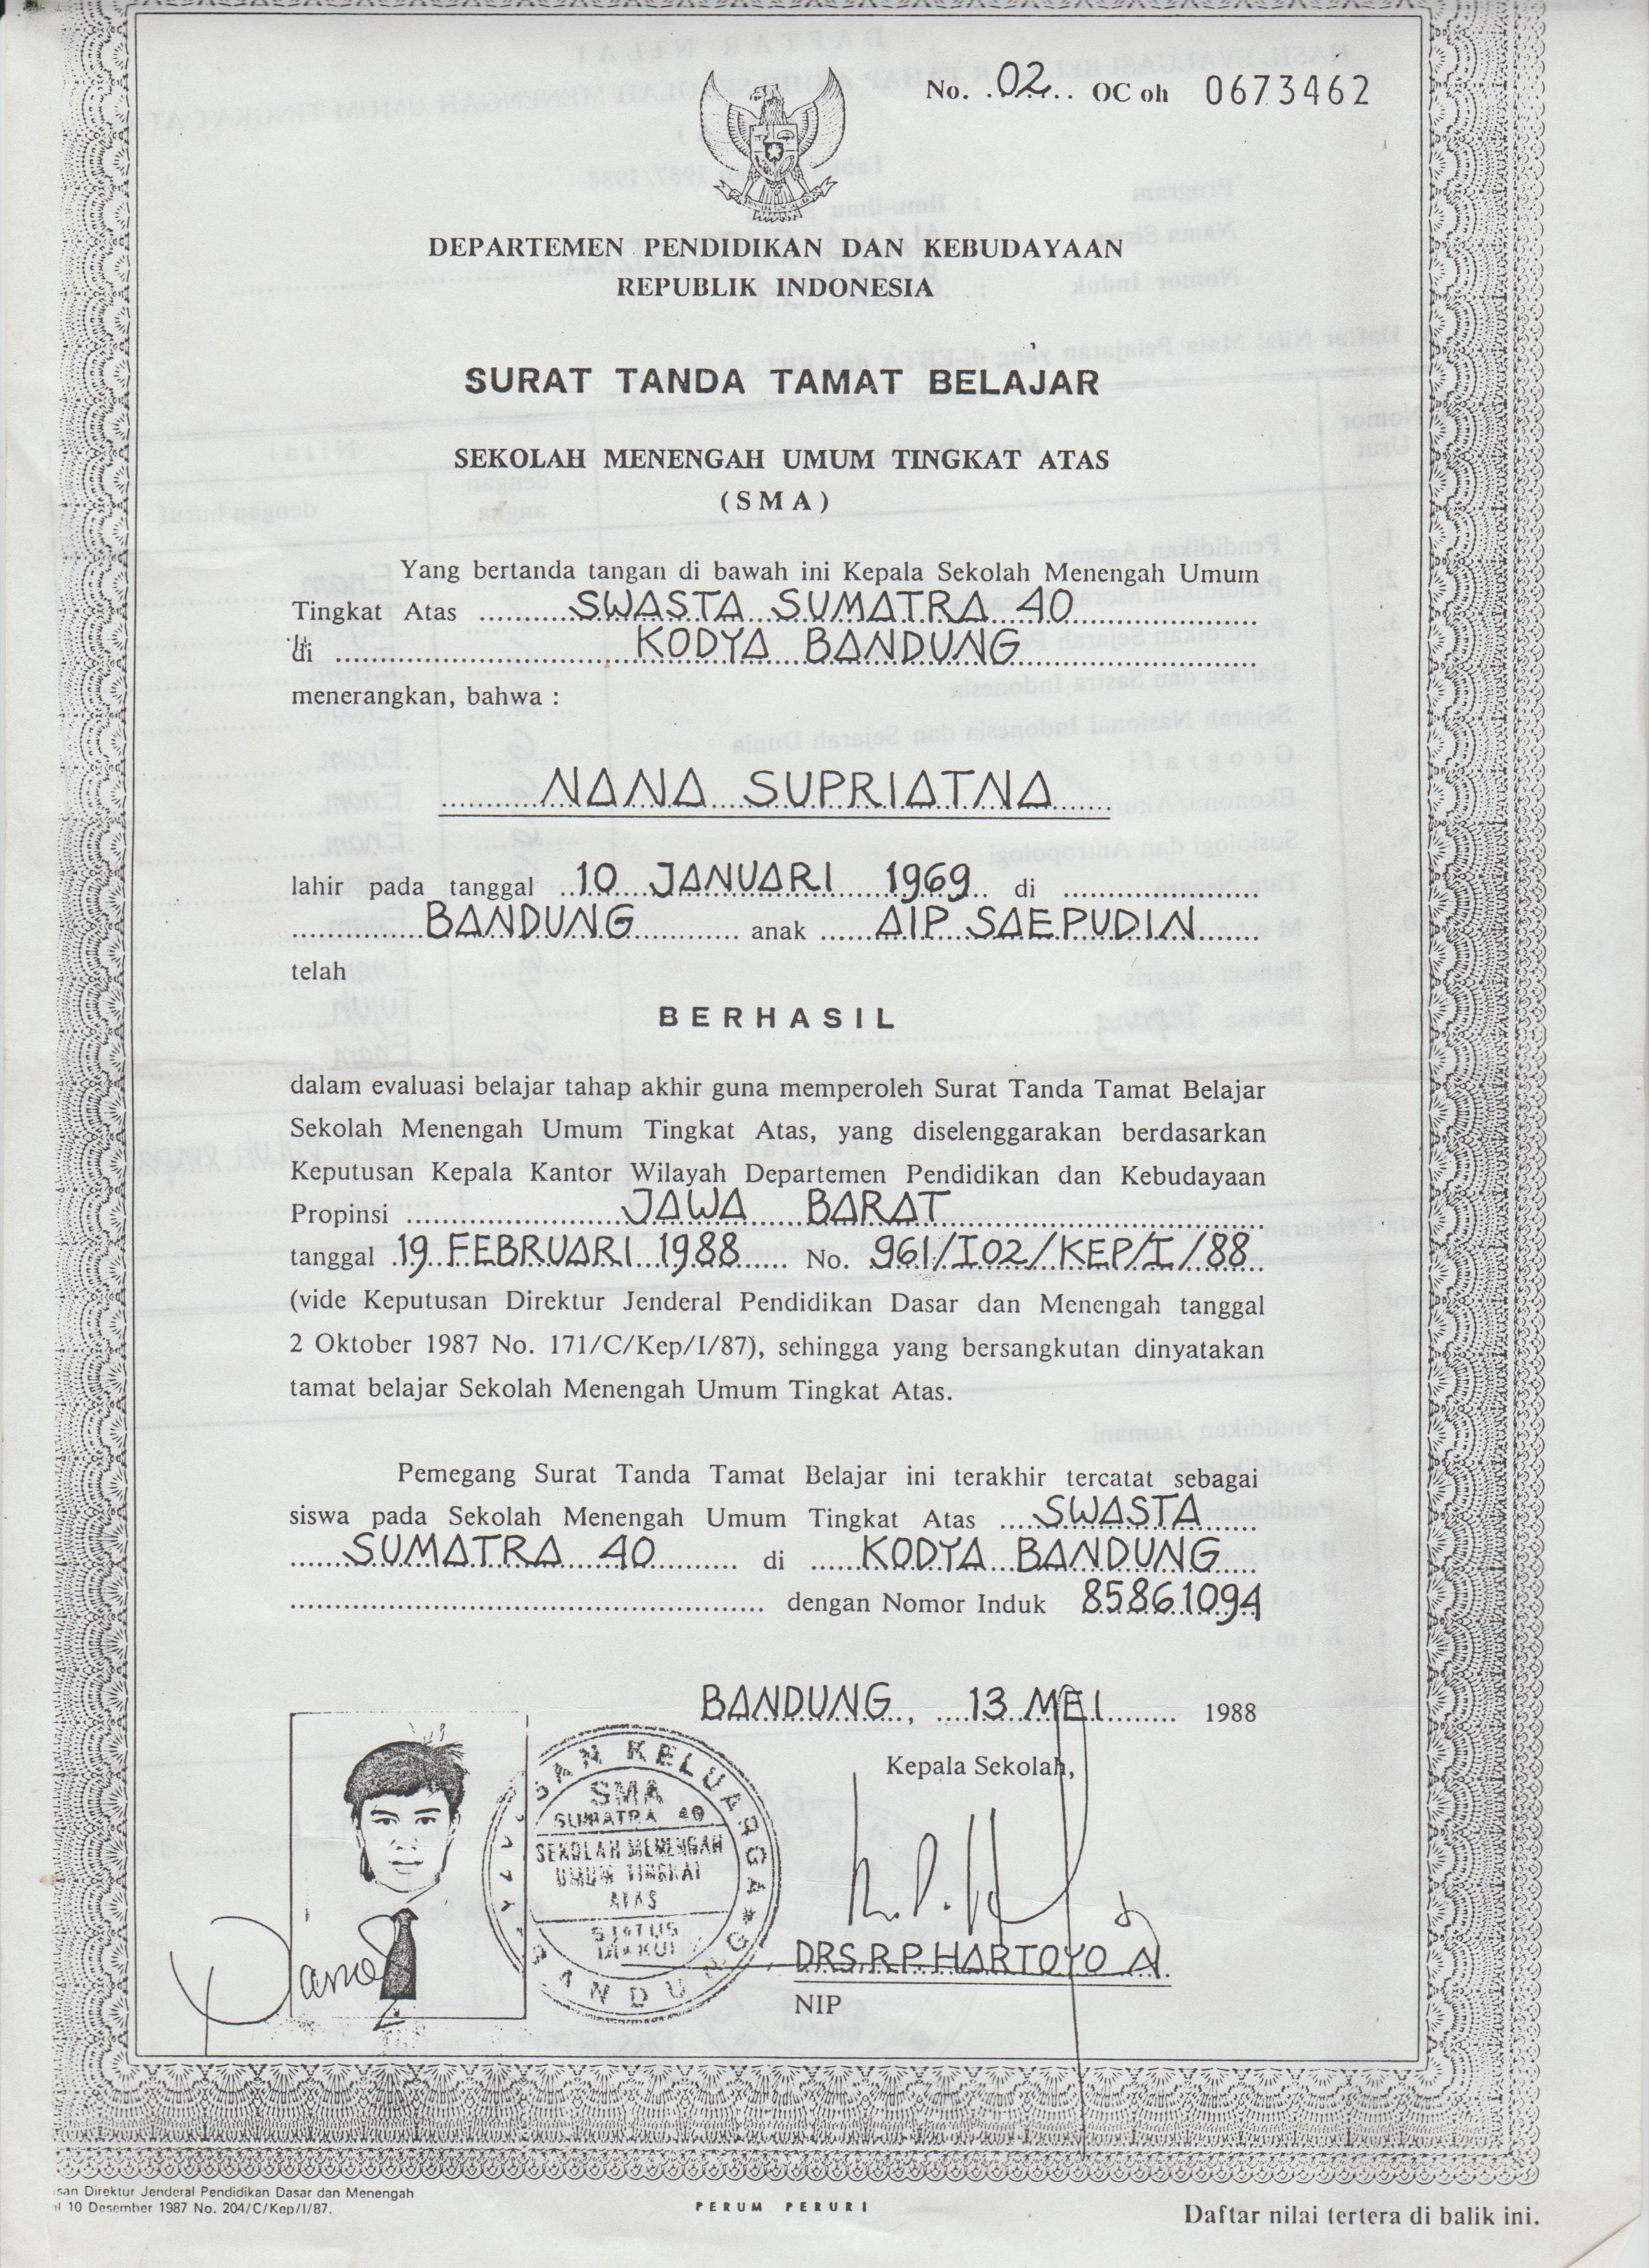 No. 02 OC oh 0673462
DEPARTEMEN PENDIDIKAN DAN KEBUDAYAAN
REPUBLIK INDONESIA
SURAT TANDA TAMAT BELAJAR
SEKOLAH MENENGAH UMUM TINGKAT ATAS
(SMA)
Yang bertanda tangan di bawah ini Kepala Sekolah Menengah Umum
Tingkat Atas SWASTA SUMATRA 40
di KODYA BANDUNG
menerangkan, bahwa :
NANA SUPRIATNA
lahir pada tanggal 10 JANUARI 1969 di
BANDUNG anak AIP SAEPUDIN
telah
BERHASIL
dalam evaluasi belajar tahap akhir guna memperoleh Surat Tanda Tamat Belajar
Sekolah Menengah Umum Tingkat Atas, yang diselenggarakan berdasarkan
Keputusan Kepala Kantor Wilayah Departemen Pendidikan dan Kebudayaan
Propinsi JAWA BARAT
tanggal 19 FEBRUARI 1988 No. 961/I02/KEP/I/88
(vide Keputusan Direktur Jenderal Pendidikan Dasar dan Menengah tanggal
2 Oktober 1987 No. 171/C/Kep/I/87), sehingga yang bersangkutan dinyatakan
tamat belajar Sekolah Menengah Umum Tingkat Atas.
Pemegang Surat Tanda Tamat Belajar ini terakhir tercatat sebagai
siswa pada Sekolah Menengah Umum Tingkat Atas SWASTA
SUMATRA 40 di KODYA BANDUNG
dengan Nomor Induk 85861094
BANDUNG, 13 MEI 1988
Kepala Sekolah,
KELUARGA
BANDUNG
SMA
SUMATRA 40
SEKOLAH MENENGAH
UMUM TINGKAT
ATAS
STATUS
DIAKUI
DRS.R.P.HARTOYO A.
NIP
Direktur Jenderal Pendidikan Dasar dan Menengah
10 Desember 1987 No. 204/C/Kep/I/87.
PERUM PERURI
Daftar nilai tertera di balik ini.